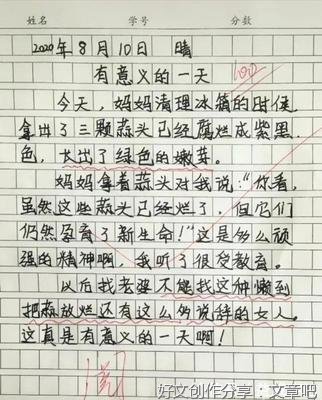 姓名 学号 分数
2020年8月10日 晴
有意义的一天
100
今天，妈妈清理冰箱的时候
拿出了三颗蒜头已经腐烂成紫黑
色，长出了绿色的嫩芽。
妈妈拿着蒜头对我说："你看，
虽然这些蒜头已经烂了，但它们
仍然孕育了新生命！"这是多么顽
强的精神啊，我听了很受教育。
以后找老婆不能找这种懒到
把蒜放烂还有这么多说辞的女人。
这真是有意义的一天啊！
阅
好文创作分享：文章吧